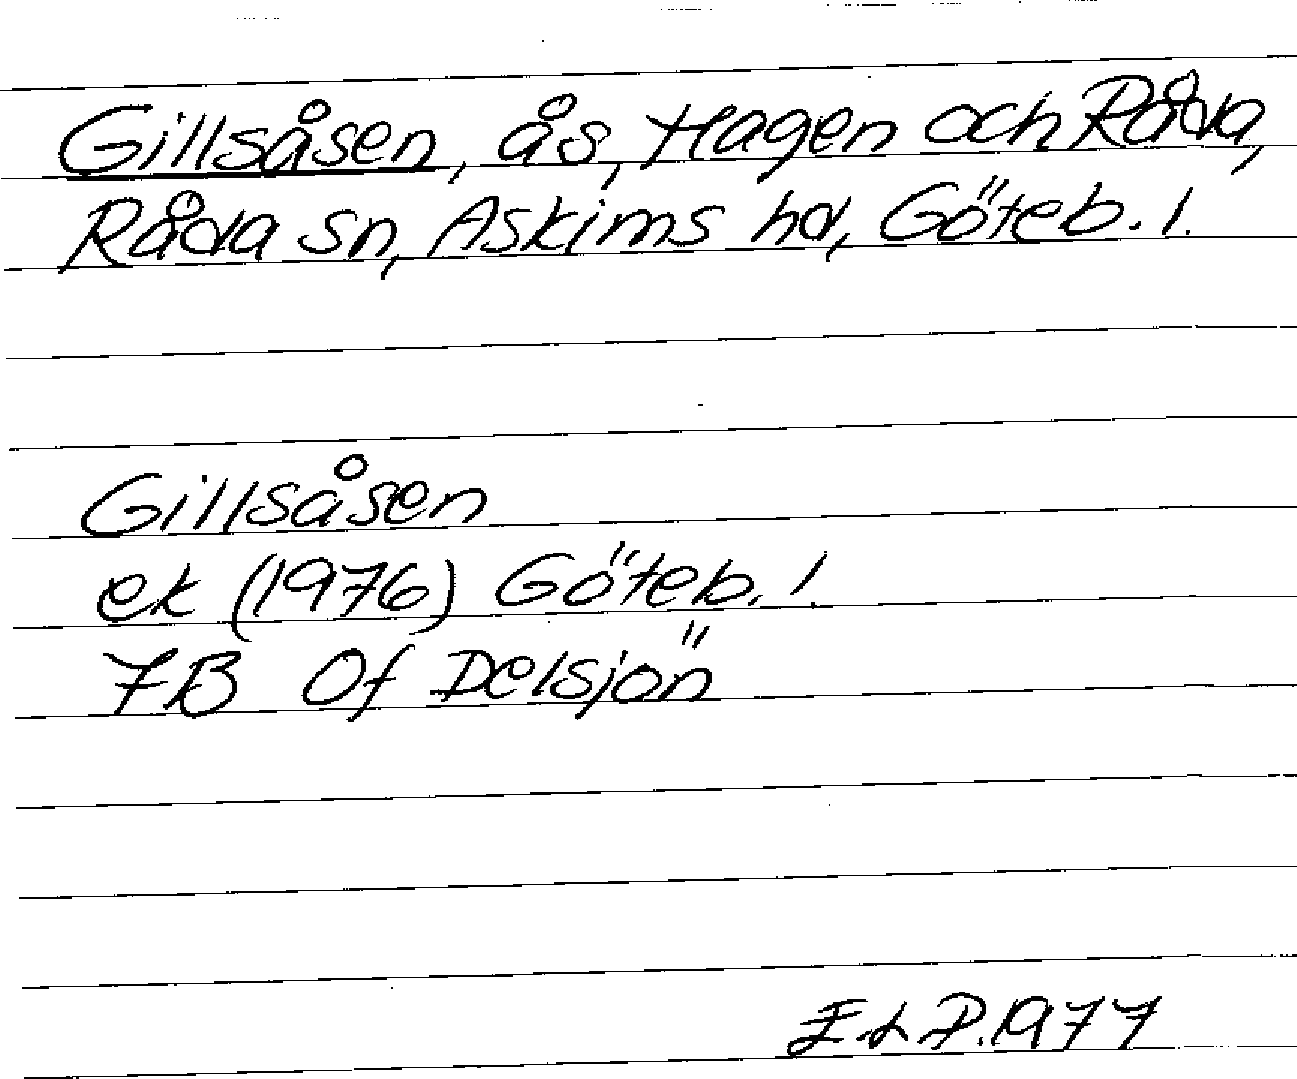 Gillsåsen, ås, Hagen och Råda,
Råda sn, Askims hd, Göteb. l.
Gillsåsen
ek (1976) Göteb. l.
7B Of Delsjön
E.L.P. 1977